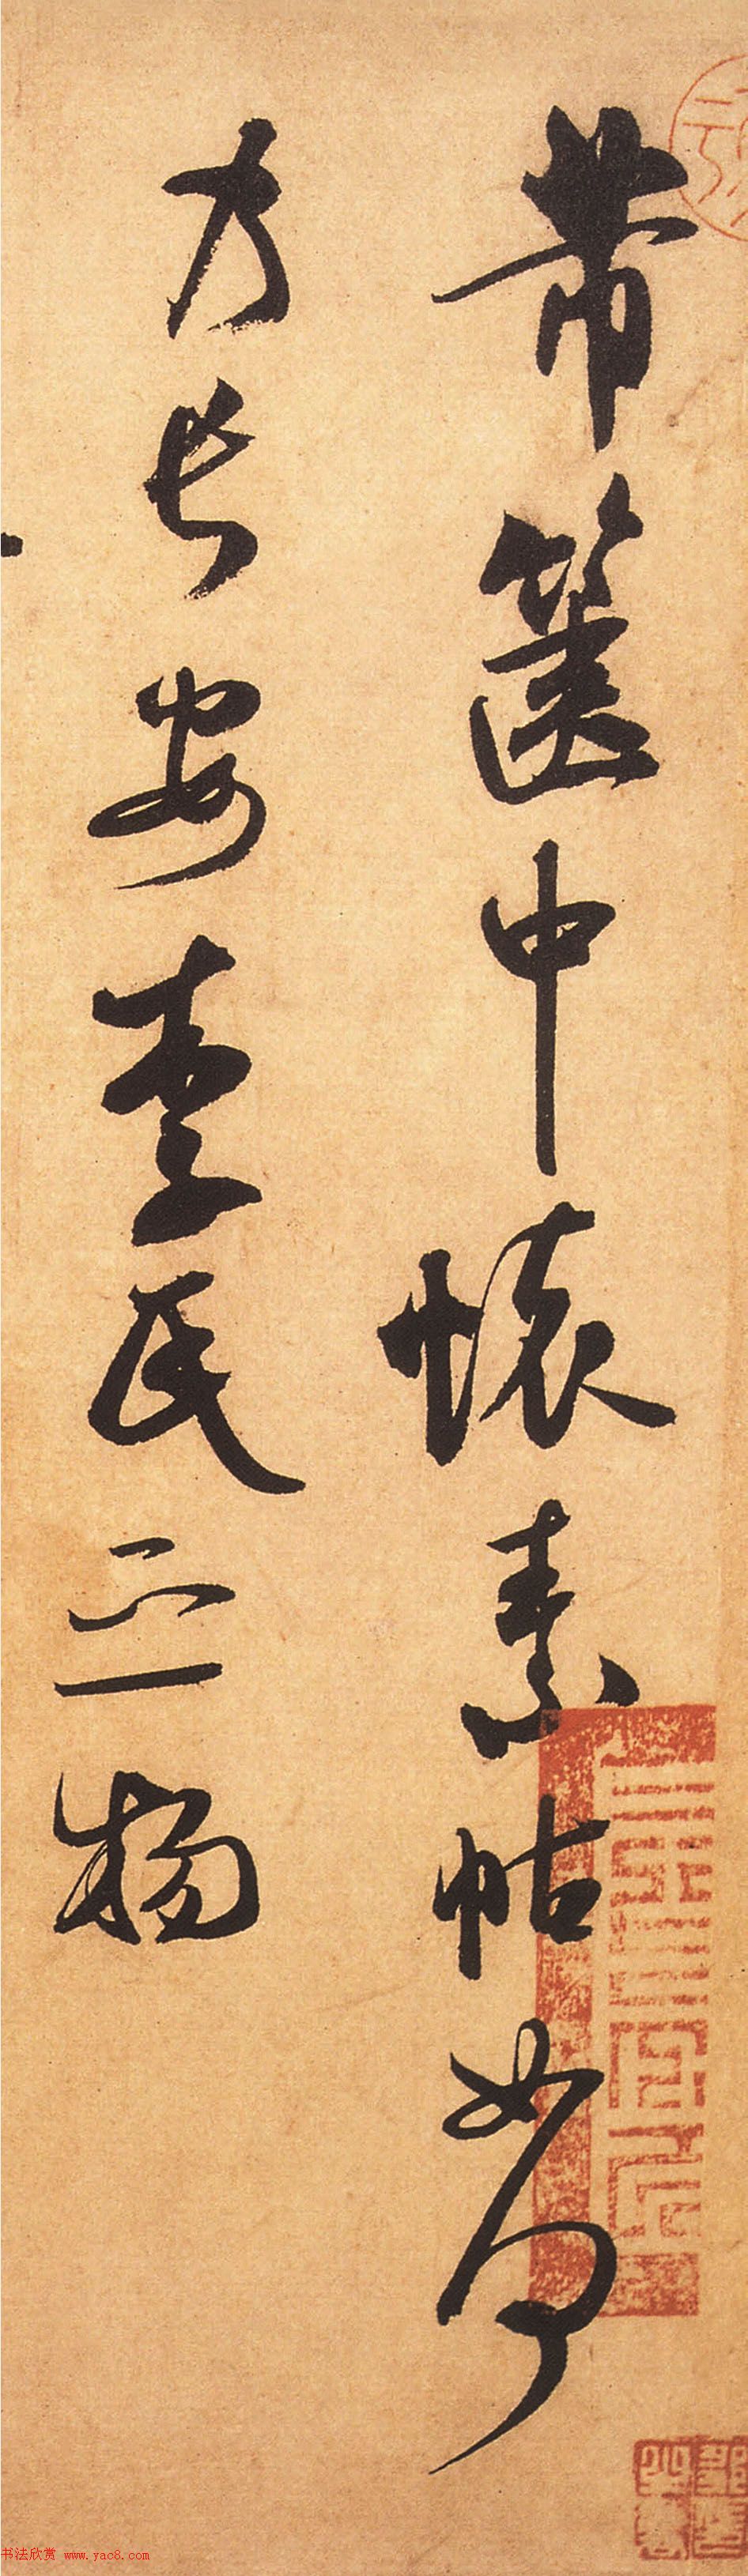 帶箧中懷素帖如何
乃長安李氏之物
书法欣赏 www.yac8.com